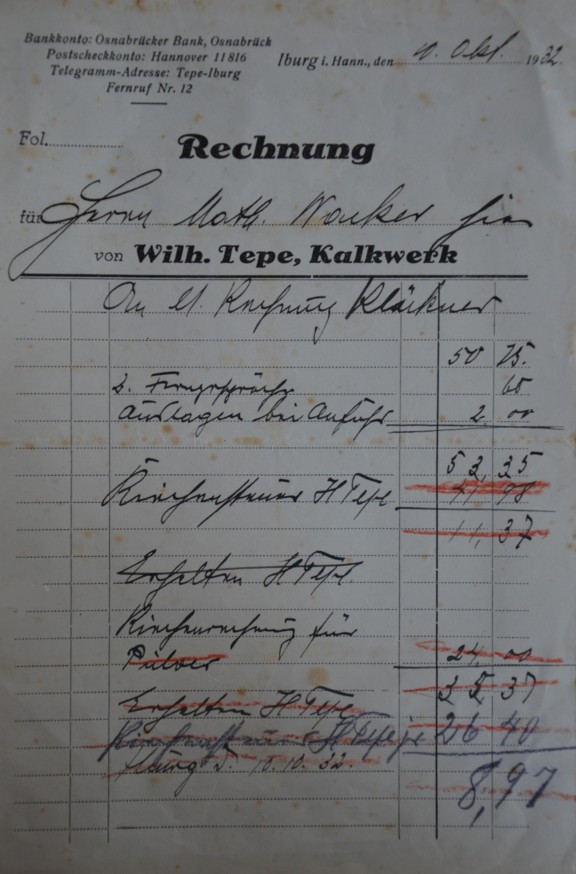 Bankkonto: Osnabrücker Bank, Osnabrück
Postscheckkonto: Hannover 11816
Telegramm-Adresse: Tepe-Iburg
Fernruf Nr. 12
Iburg i. Hann., den Okt. 1932.
Fol.
Rechnung
für Herrn Math. hier
von Wilh. Tepe, Kalkwerk
An Rechnung Klöckner
50 75.
2. Ferngespräche 60
Auslagen bei Anfuhr 2 00
53,35
Kirchensteuer H Tepe 41 98
11,37
Erhalten H Tepe.
Kirchenrechnung für
Pulver 24,00
35,37
Erhalten H Tepe
Kirchensteuer H Tepe 26 40
10.10.32.
8,97